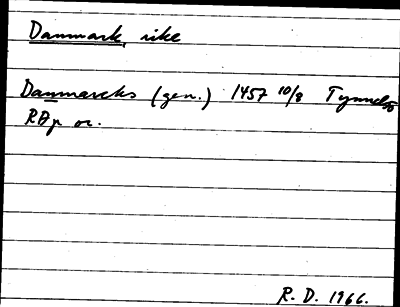 Danmark, rike
Danmarcks (gen.) 1457 10/8 Tynnelsö
RAp or.
R. D. 1966.